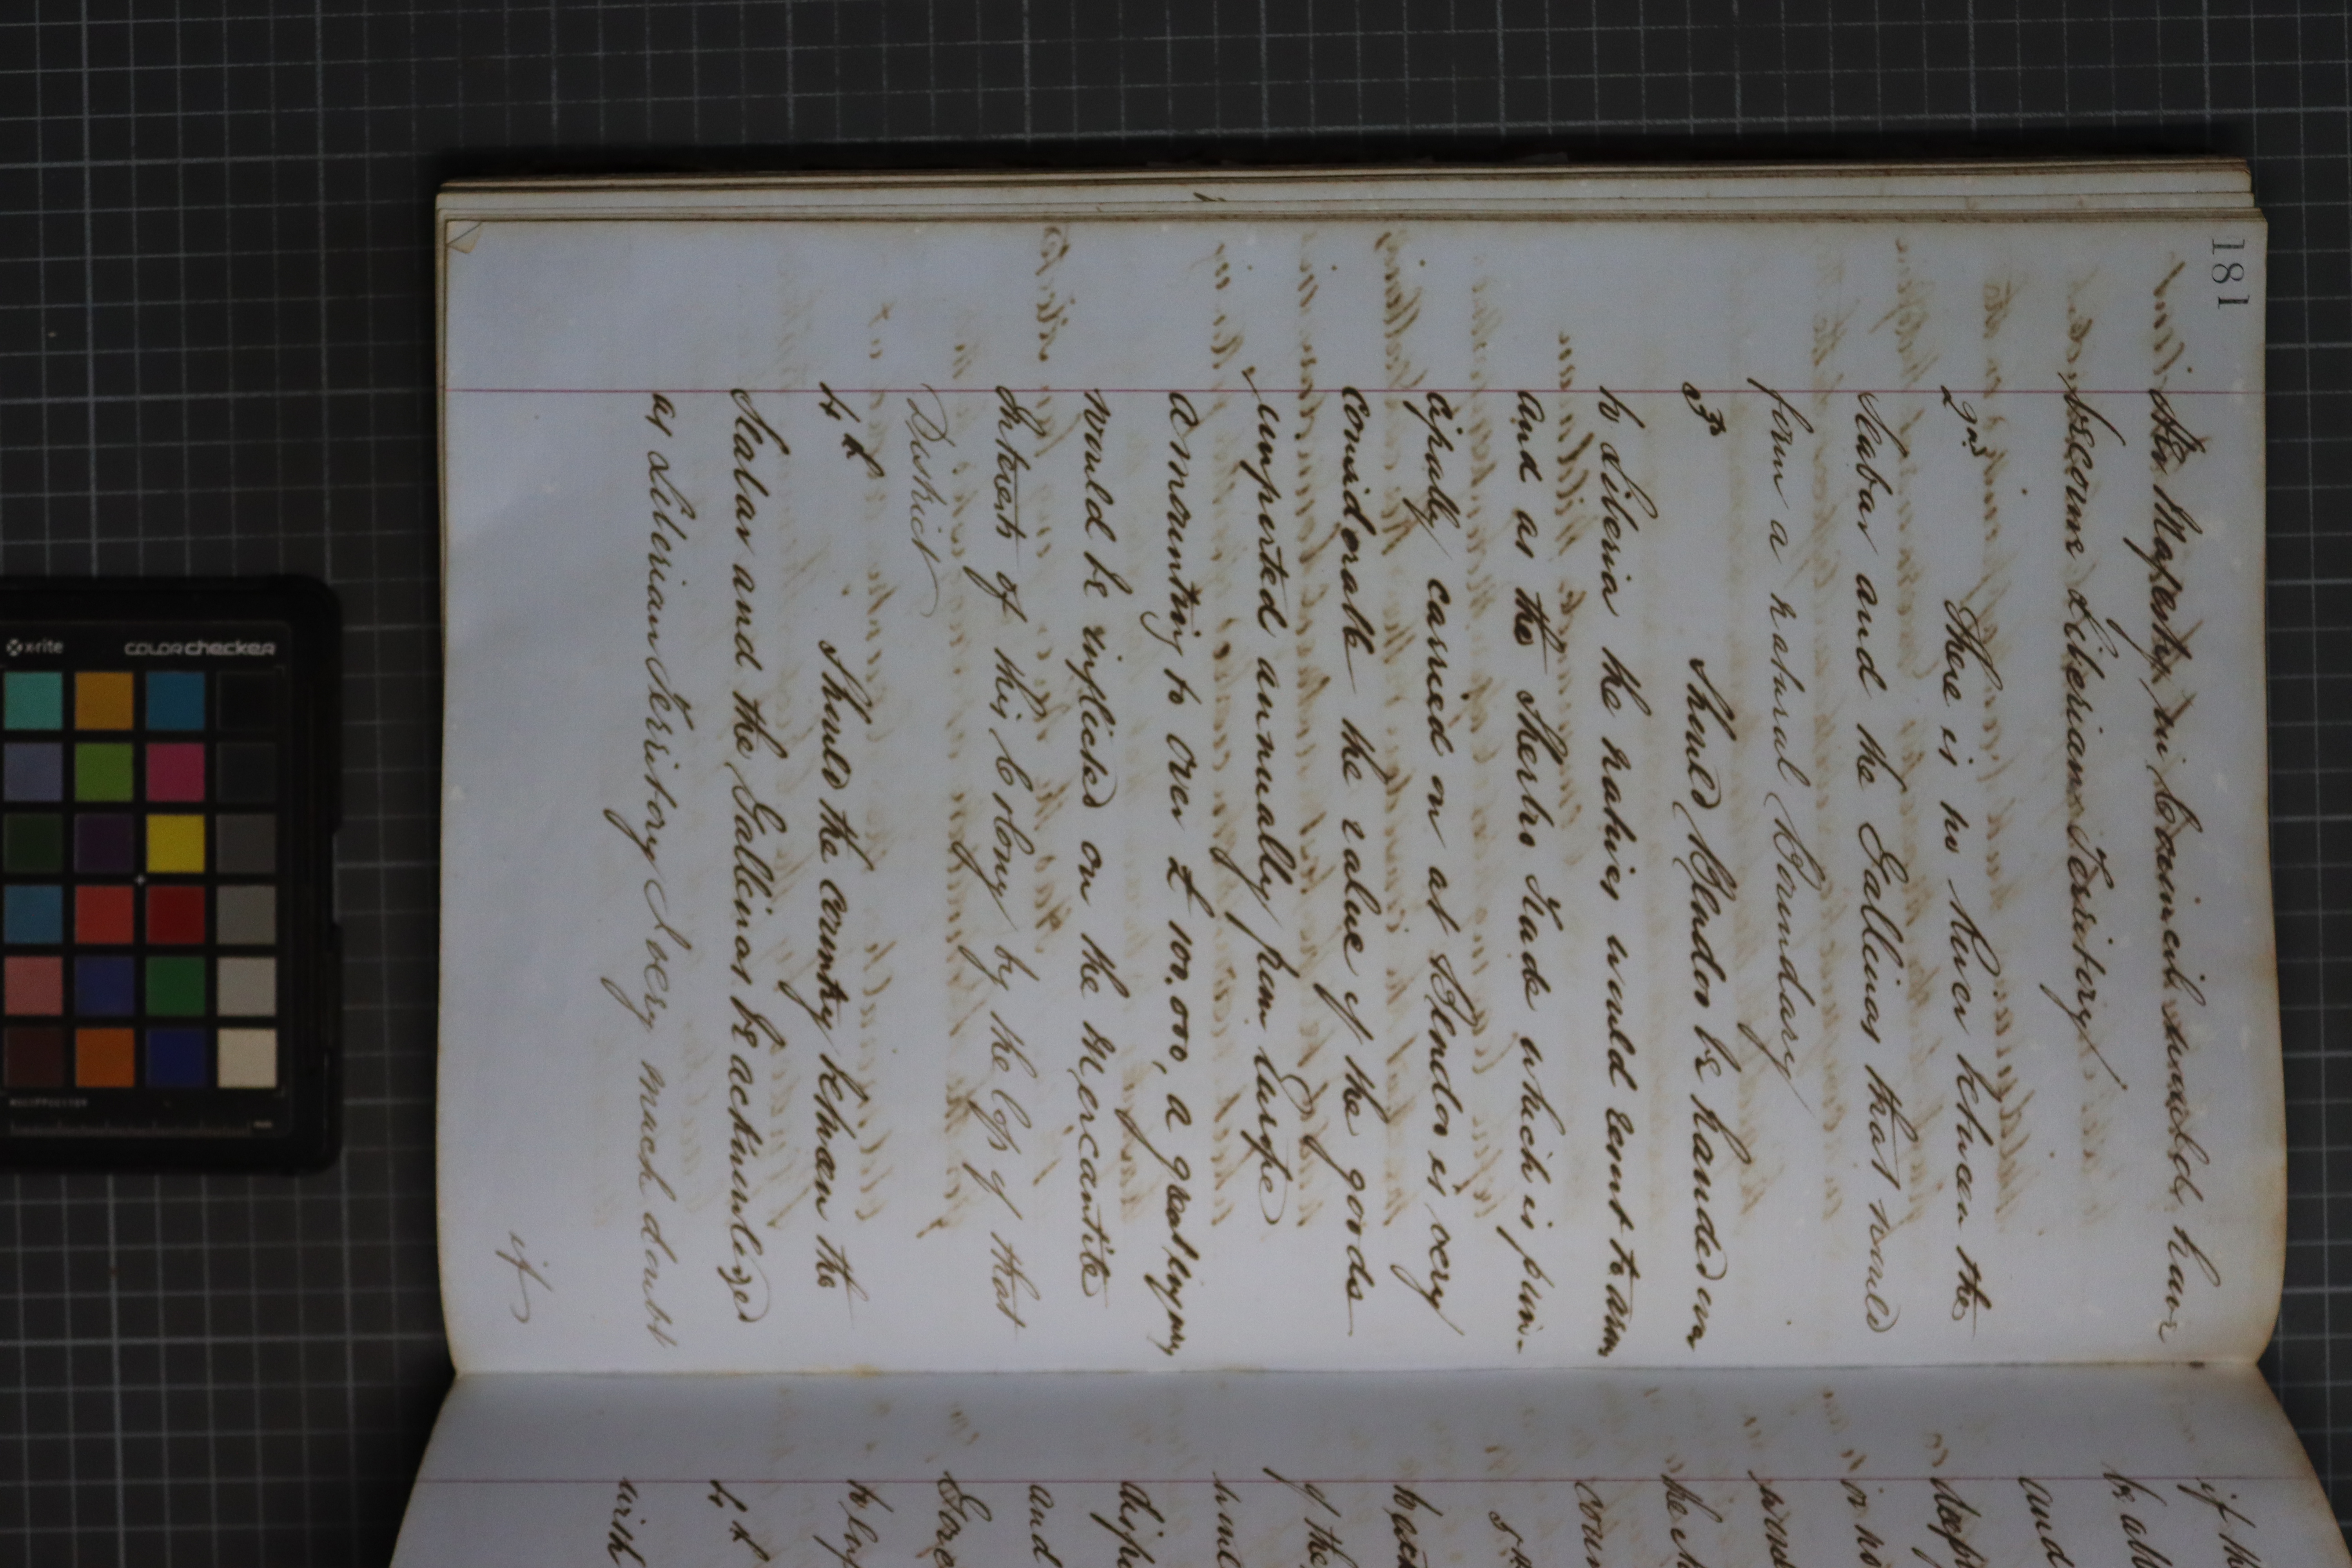 181
Her Majesty in Council should have
become Liberian Territory
2nd There is no River between the
Seabar and the Gallinas that would
form a natural boundary
3rd Should Bendoo be handed over
to Liberia the natives would resort to arms
and as the Sherbro Trade which is prin-
cipally carried on at Bendoo is very
considerable the value of the goods
imported annually from Europe
amounting to over £100,000, a great injury
would be inflicted on the Mercantile
Interests of this Colony by the loss of that
District
4th Should the country between the
Seabar and the Gallinas be acknowledged
as Liberian Territory I very much doubt
if
if
be
and
in
the
coun
5th
to
of the
and
to
4th
with
x-rite
colorchecker